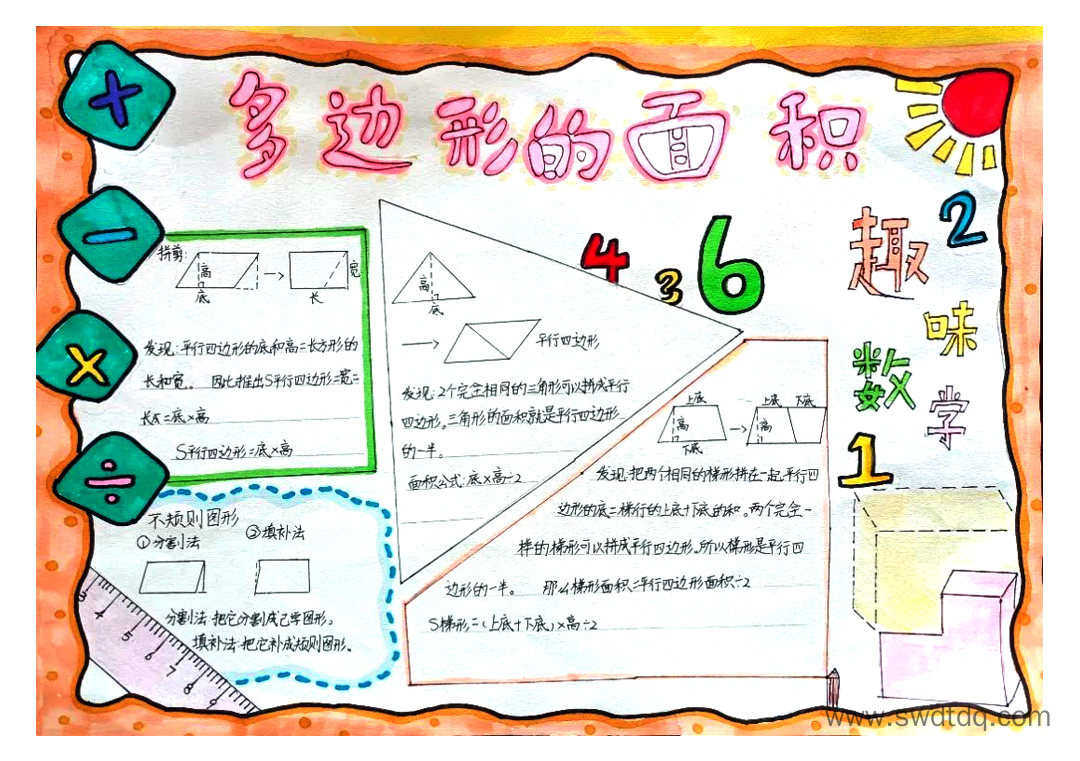 多边形的面积
趣味数学
+
−
×
÷
4
3
6
2
1
拼剪:
高
底
宽
长
发现:平行四边形的底和高=长方形的
长和宽。因此推出S平行四边形=宽=
长=底×高
S平行四边形=底×高
高
底
平行四边形
发现:2个完全相同的三角形可以拼成平行
四边形。三角形的面积就是平行四边形
的一半。
面积公式:底×高÷2
上底
高
下底
上底 下底
高
发现:把两个相同的梯形拼在一起,平行四
边形的底=梯行的上底+下底的和。两个完全一
样的梯形可以拼成平行四边形。所以梯形是平行四
边形的一半。那么梯形面积=平行四边形面积÷2
S梯形=(上底+下底)×高÷2
不规则图形
①分割法 ②填补法
分割法:把它分割成已学图形。
填补法:把它补成规则图形。
3 4 5 6 7 8 9
www.swdtdq.com